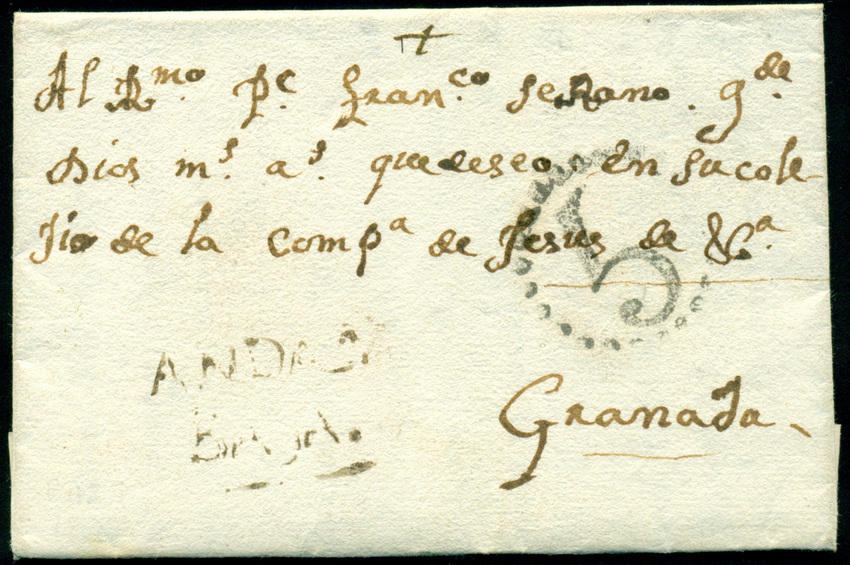 +
Al Rmo Pe Franco Serrano. gde
Dios ms as que deseo en su cole-
Jio de la compa de Jesus de &a.
5
ANDAL
BAXA.
Granada